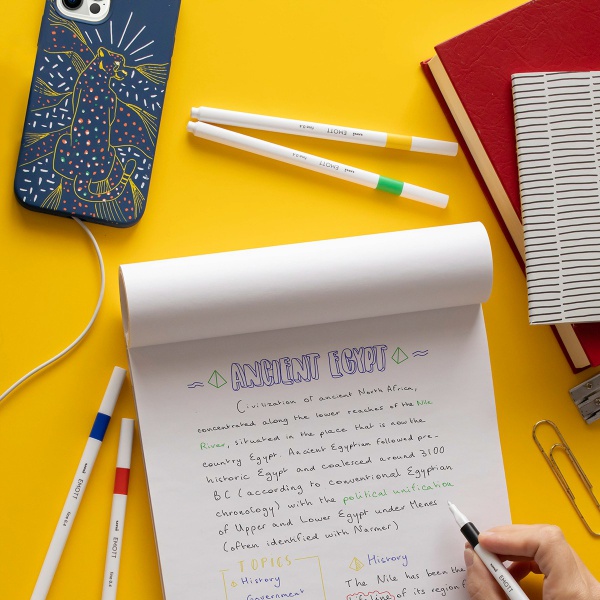 EMOTT
uni
fine 0.4
EMOTT
uni
fine 0.4
ANCIENT EGYPT
Civilization of ancient North Africa,
concentrated along the lower reaches of the Nile
River, situated in the place that is now the
country Egypt. Ancient Egyptian followed pre-
historic Egypt and coalesced around 3100
BC (according to conventional Egyptian
chronology) with the political unification
of Upper and Lower Egypt under Menes
(often identified with Narmer)
TOPICS
History
Government
History
The Nile has been the
of its region f
uni EMOTT fine 0.4
uni EMOTT fine 0.4
uni EMOTT